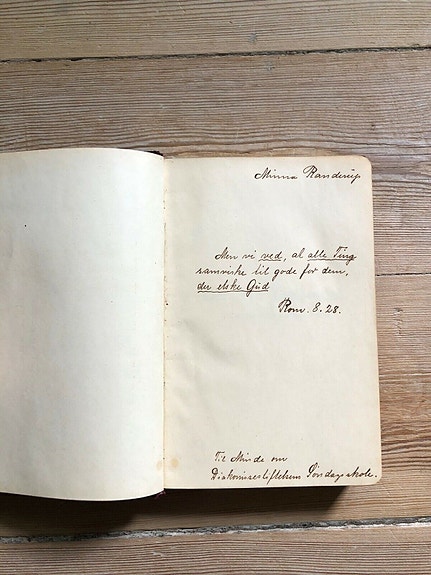 Minna Randrup
Men vi ved, at alle Ting
samvirke til gode for dem,
der elske Gud
Rom. 8.28.
Til Minde om
Diakonissestiftelsens Søndagsskole.